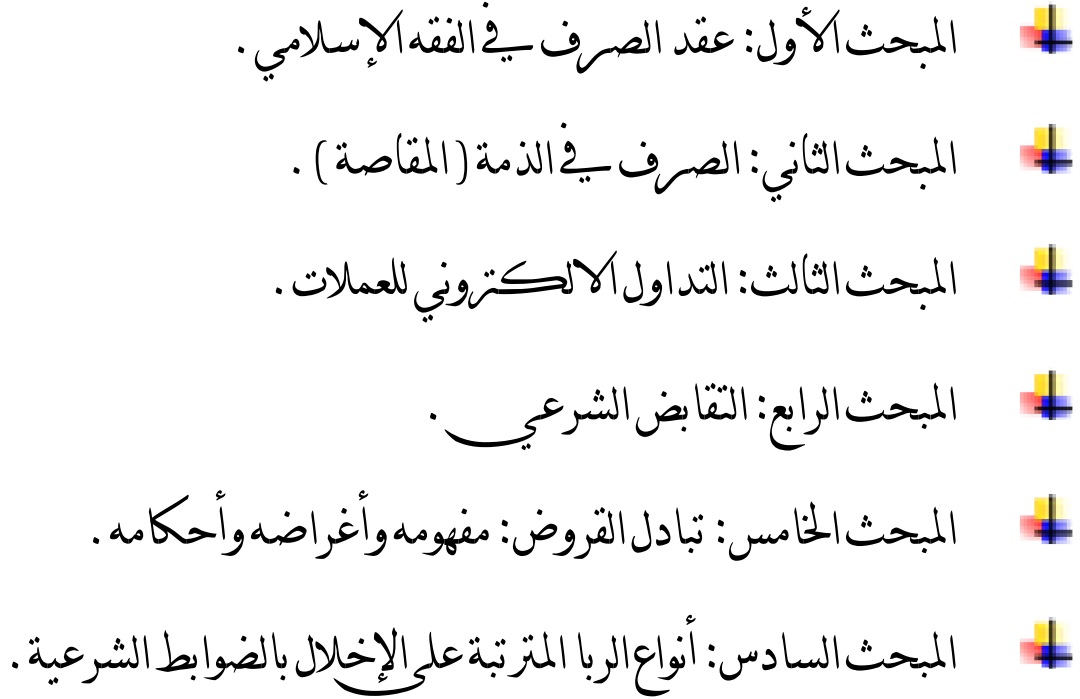 المبحث الأول: عقد الصرف في الفقه الإسلامي .
المبحث الثاني: الصرف في الذمة ( المقاصة ) .
المبحث الثالث: التداول الالكتروني للعملات .
المبحث الرابع: التقابض الشرعي .
المبحث الخامس: تبادل القروض: مفهومه وأغراضه وأحكامه .
المبحث السادس: أنواع الربا المترتبة على الإخلال بالضوابط الشرعية .